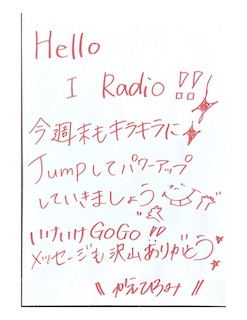 Hello
I Radio !!
今週末もキラキラに
Jumpしてパワーアップ
していきましょう
いけいけGoGo !!
メッセージも沢山ありがとう